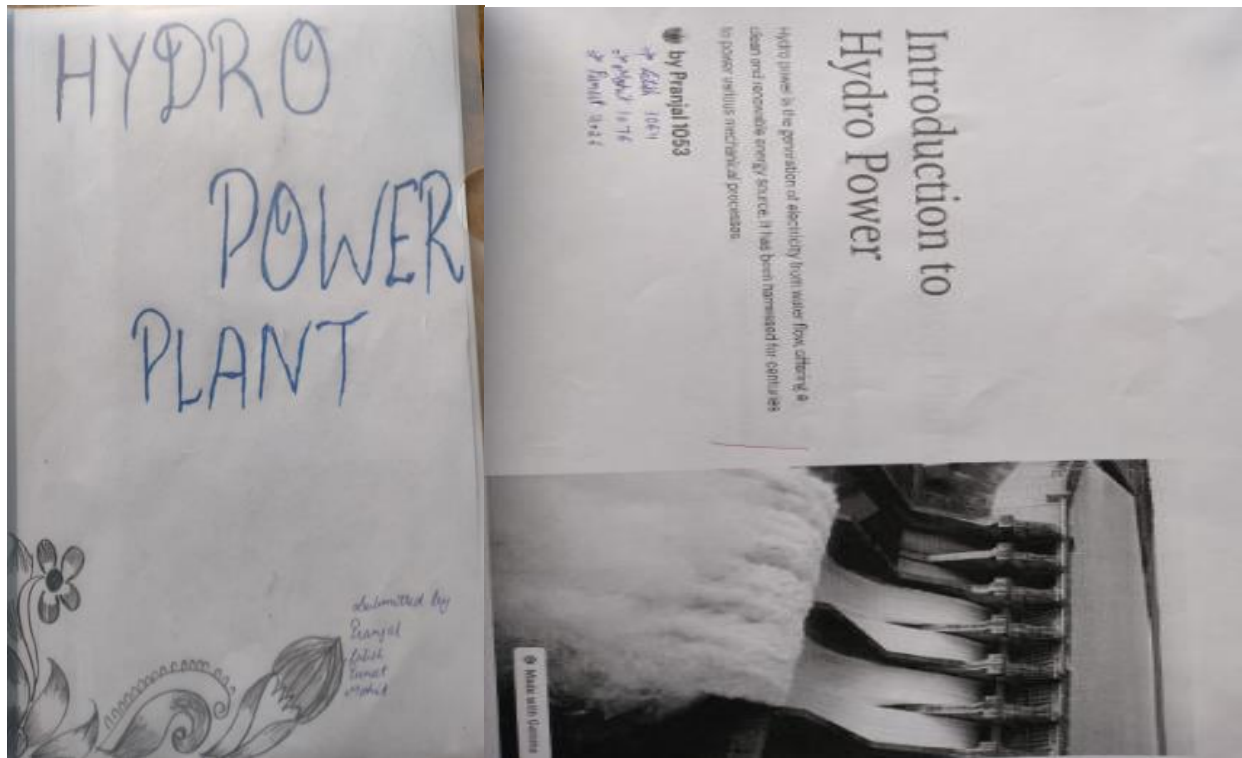 HYDRO
POWER
PLANT
Submitted by
Pranjal
Mohit
Introduction to
Hydro Power
Hydro power is the generation of electricity from water flow, offering a
clean and renewable energy source. It has been harnessed for centuries
to power various mechanical processes.
by Pranjal 1053
1064
Mohit 1076
Made with Gamma